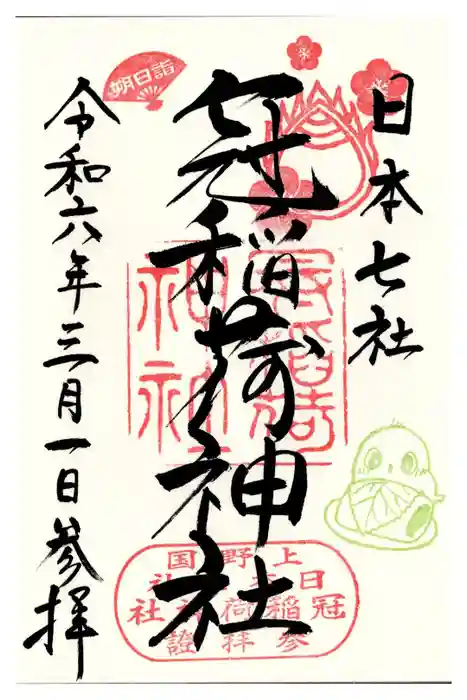 日本七社
冠稲荷神社
令和六年三月一日参拝
朔日詣
冠稲荷
神社
上野国
日本七社
冠稲荷神社
参拝證